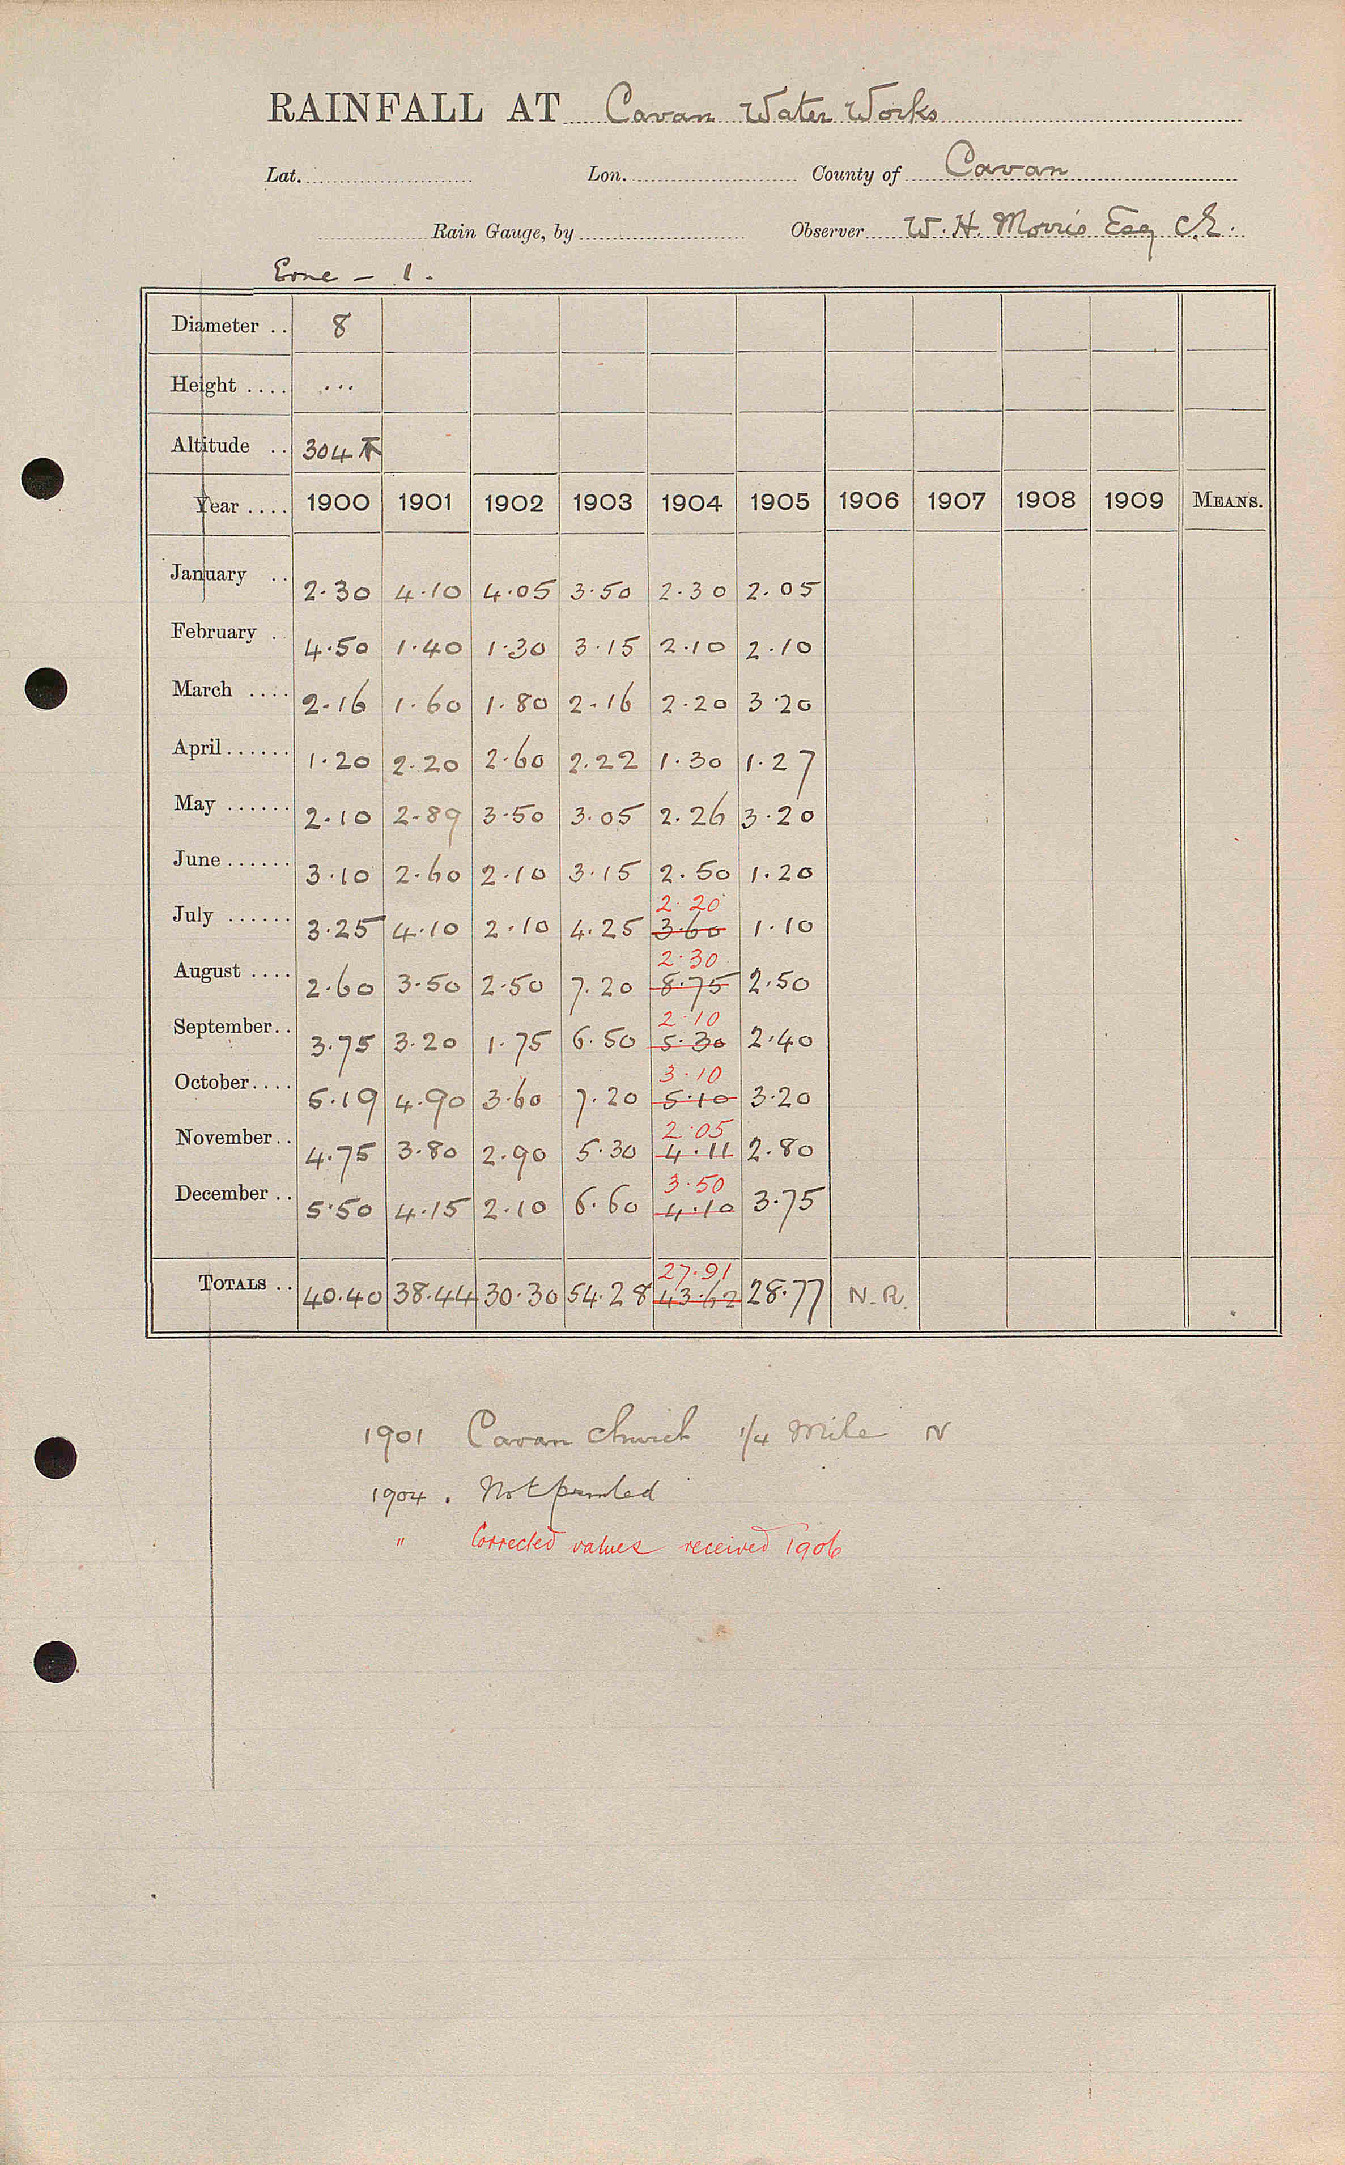 RAINFALL AT Cavan Water Works
Lat. Lon. County of Cavan
Rain Gauge, by Observer W. H. Morris Esq C.E.
Erne - 1.
Diameter .. 8
Height .... ...
Altitude .. 304
Year .... 1900 1901 1902 1903 1904 1905 1906 1907 1908 1909 MEANS.
January .. 2.30 4.10 4.05 3.50 2.30 2.05
February . 4.50 1.40 1.30 3.15 2.10 2.10
March .... 2.16 1.60 1.80 2.16 2.20 3.20
April...... 1.20 2.20 2.60 2.22 1.30 1.27
May ...... 2.10 2.89 3.50 3.05 2.26 3.20
June...... 3.10 2.60 2.10 3.15 2.50 1.20
2.20
July ...... 3.25 4.10 2.10 4.25 3.60 1.10
2.30
August .... 2.60 3.50 2.50 7.20 8.75 2.50
2.10
September.. 3.75 3.20 1.75 6.50 5.30 2.40
3.10
October.... 5.19 4.90 3.60 7.20 5.10 3.20
2.05
November.. 4.75 3.80 2.90 5.30 4.11 2.80
3.50
December .. 5.50 4.15 2.10 6.60 4.10 3.75
27.91
TOTALS .. 40.40 38.44 30.30 54.28 43.62 28.77 N.R.
1901 Cavan Church 1/4 Mile N
1904. Not printed
" Corrected values received 1906